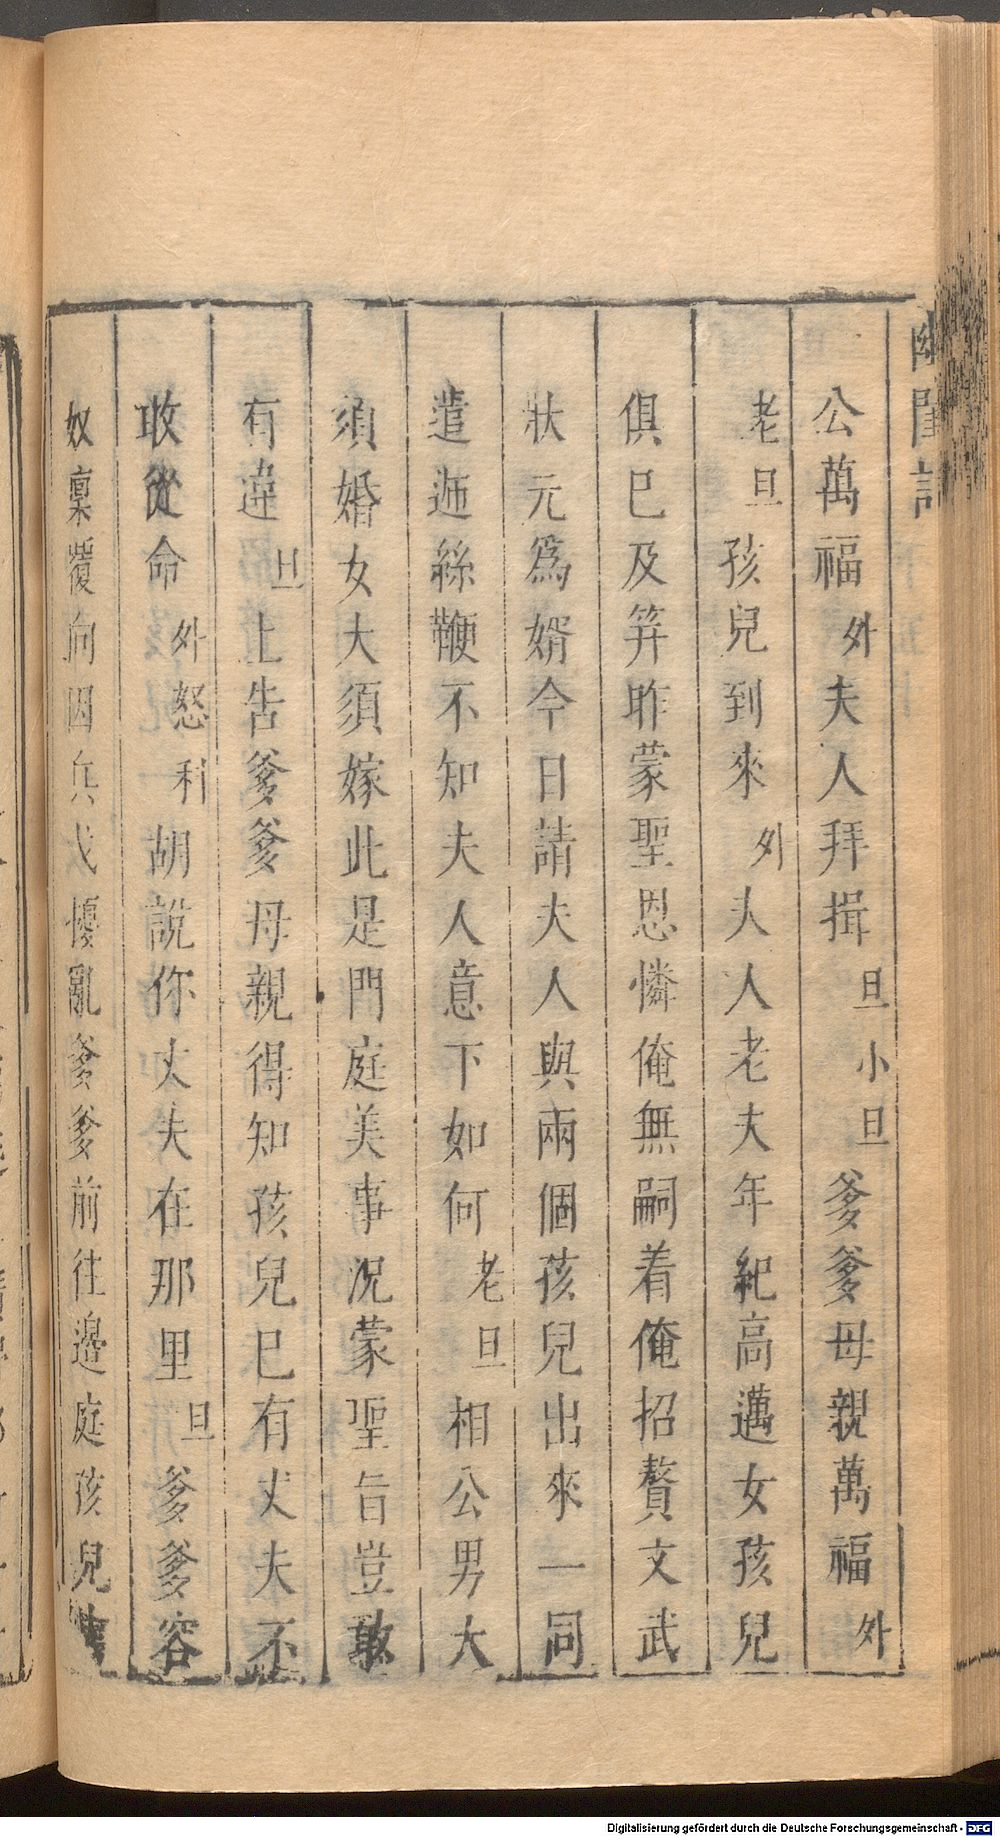 幽閨記
公萬福外夫人拜揖旦小旦爹爹母親萬福外
老旦孩兒到來外夫人老夫年紀高邁女孩兒
俱已及笄昨蒙聖恩憐俺無嗣着俺招贅文武
狀元爲婿今日請夫人與兩個孩兒出來一同
遣遞絲鞭不知夫人意下如何老旦相公男大
須婚女大須嫁此是門庭美事况蒙聖旨豈敢
有違旦上告爹爹母親得知孩兒已有丈夫不
敢從命外怒科胡說你丈夫在那里旦爹爹容
奴稟覆向因兵戈擾亂爹爹前往邊庭孩兒
Digitalisierung gefördert durch die Deutsche Forschungsgemeinschaft - DFG